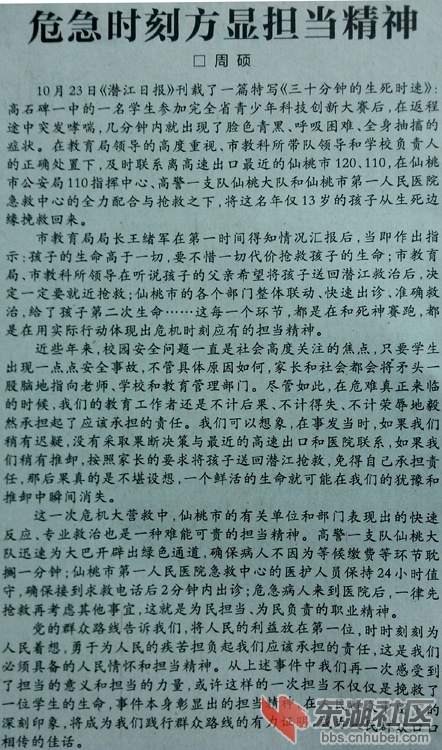 危急时刻方显担当精神
□ 周硕
10月23日《潜江日报》刊载了一篇特写《三十分钟的生死时速》:
高石碑一中的一名学生参加完全省青少年科技创新大赛后,在返程
途中突发哮喘,几分钟内就出现了脸色青黑、呼吸困难、全身抽搐的
症状。在教育局领导的高度重视、市教科所带队领导和学校负责人
的正确处置下,及时联系离高速出口最近的仙桃市120、110,在仙桃
市公安局110指挥中心、高警一支队仙桃大队和仙桃市第一人民医院
急救中心的全力配合与抢救之下,将这名年仅13岁的孩子从生死边
缘挽救回来。
市教育局局长王绪军在第一时间得知情况汇报后,当即作出指
示:孩子的生命高于一切,要不惜一切代价抢救孩子的生命;市教育
局、市教科所领导在听说孩子的父亲希望将孩子送回潜江救治后,决
定一定要就近抢救;仙桃市的各个部门整体联动、快速出诊、准确救
治,给了孩子第二次生命……这每一个环节,都是在和死神赛跑,都
是在用实际行动体现出危机时刻应有的担当精神。
近些年来,校园安全问题一直是社会高度关注的焦点,只要学生
出现一点点安全事故,不管具体原因如何,家长和社会都会将矛头一
股脑地指向老师、学校和教育管理部门。尽管如此,在危难真正来临
的时候,我们的教育工作者还是不计后果、不计得失、不计荣辱地毅
然承担起了应该承担的责任。我们可以想象,在事发当时,如果我们
稍有迟疑,没有采取果断决策与最近的高速出口和医院联系,如果我
们稍有推卸,按照家长的要求将孩子送回潜江抢救,免得自己承担责
任,那后果真的是不堪设想,一个鲜活的生命就可能在我们的犹豫和
推卸中瞬间消失。
这一次危机大营救中,仙桃市的有关单位和部门表现出的快速
反应、专业救治也是一种难能可贵的担当精神。高警一支队仙桃大
队迅速为大巴开辟出绿色通道,确保病人不因为等候缴费等环节耽
搁一分钟;仙桃市第一人民医院急救中心的医护人员保持24小时值
守,确保接到求救电话后2分钟内出诊;危急病人来到医院后,一律先
抢救再考虑其他事宜,这就是为民担当、为民负责的职业精神。
党的群众路线告诉我们,将人民的利益放在第一位,时时刻刻为
人民着想,勇于为人民的疾苦担负起我们应该承担的责任,这是我们
必须具备的人民情怀和担当精神。从上述事件中我们再一次感受到
了担当的意义和担当的力量,或许这样的一次担当不仅仅是挽救了
一位学生的生命,事件本身彰显出的担当精神,在
深刻印象,将成为我们践行群众路线的有力证明
相传的佳话。
东湖社区
bbs.cnhubei.com